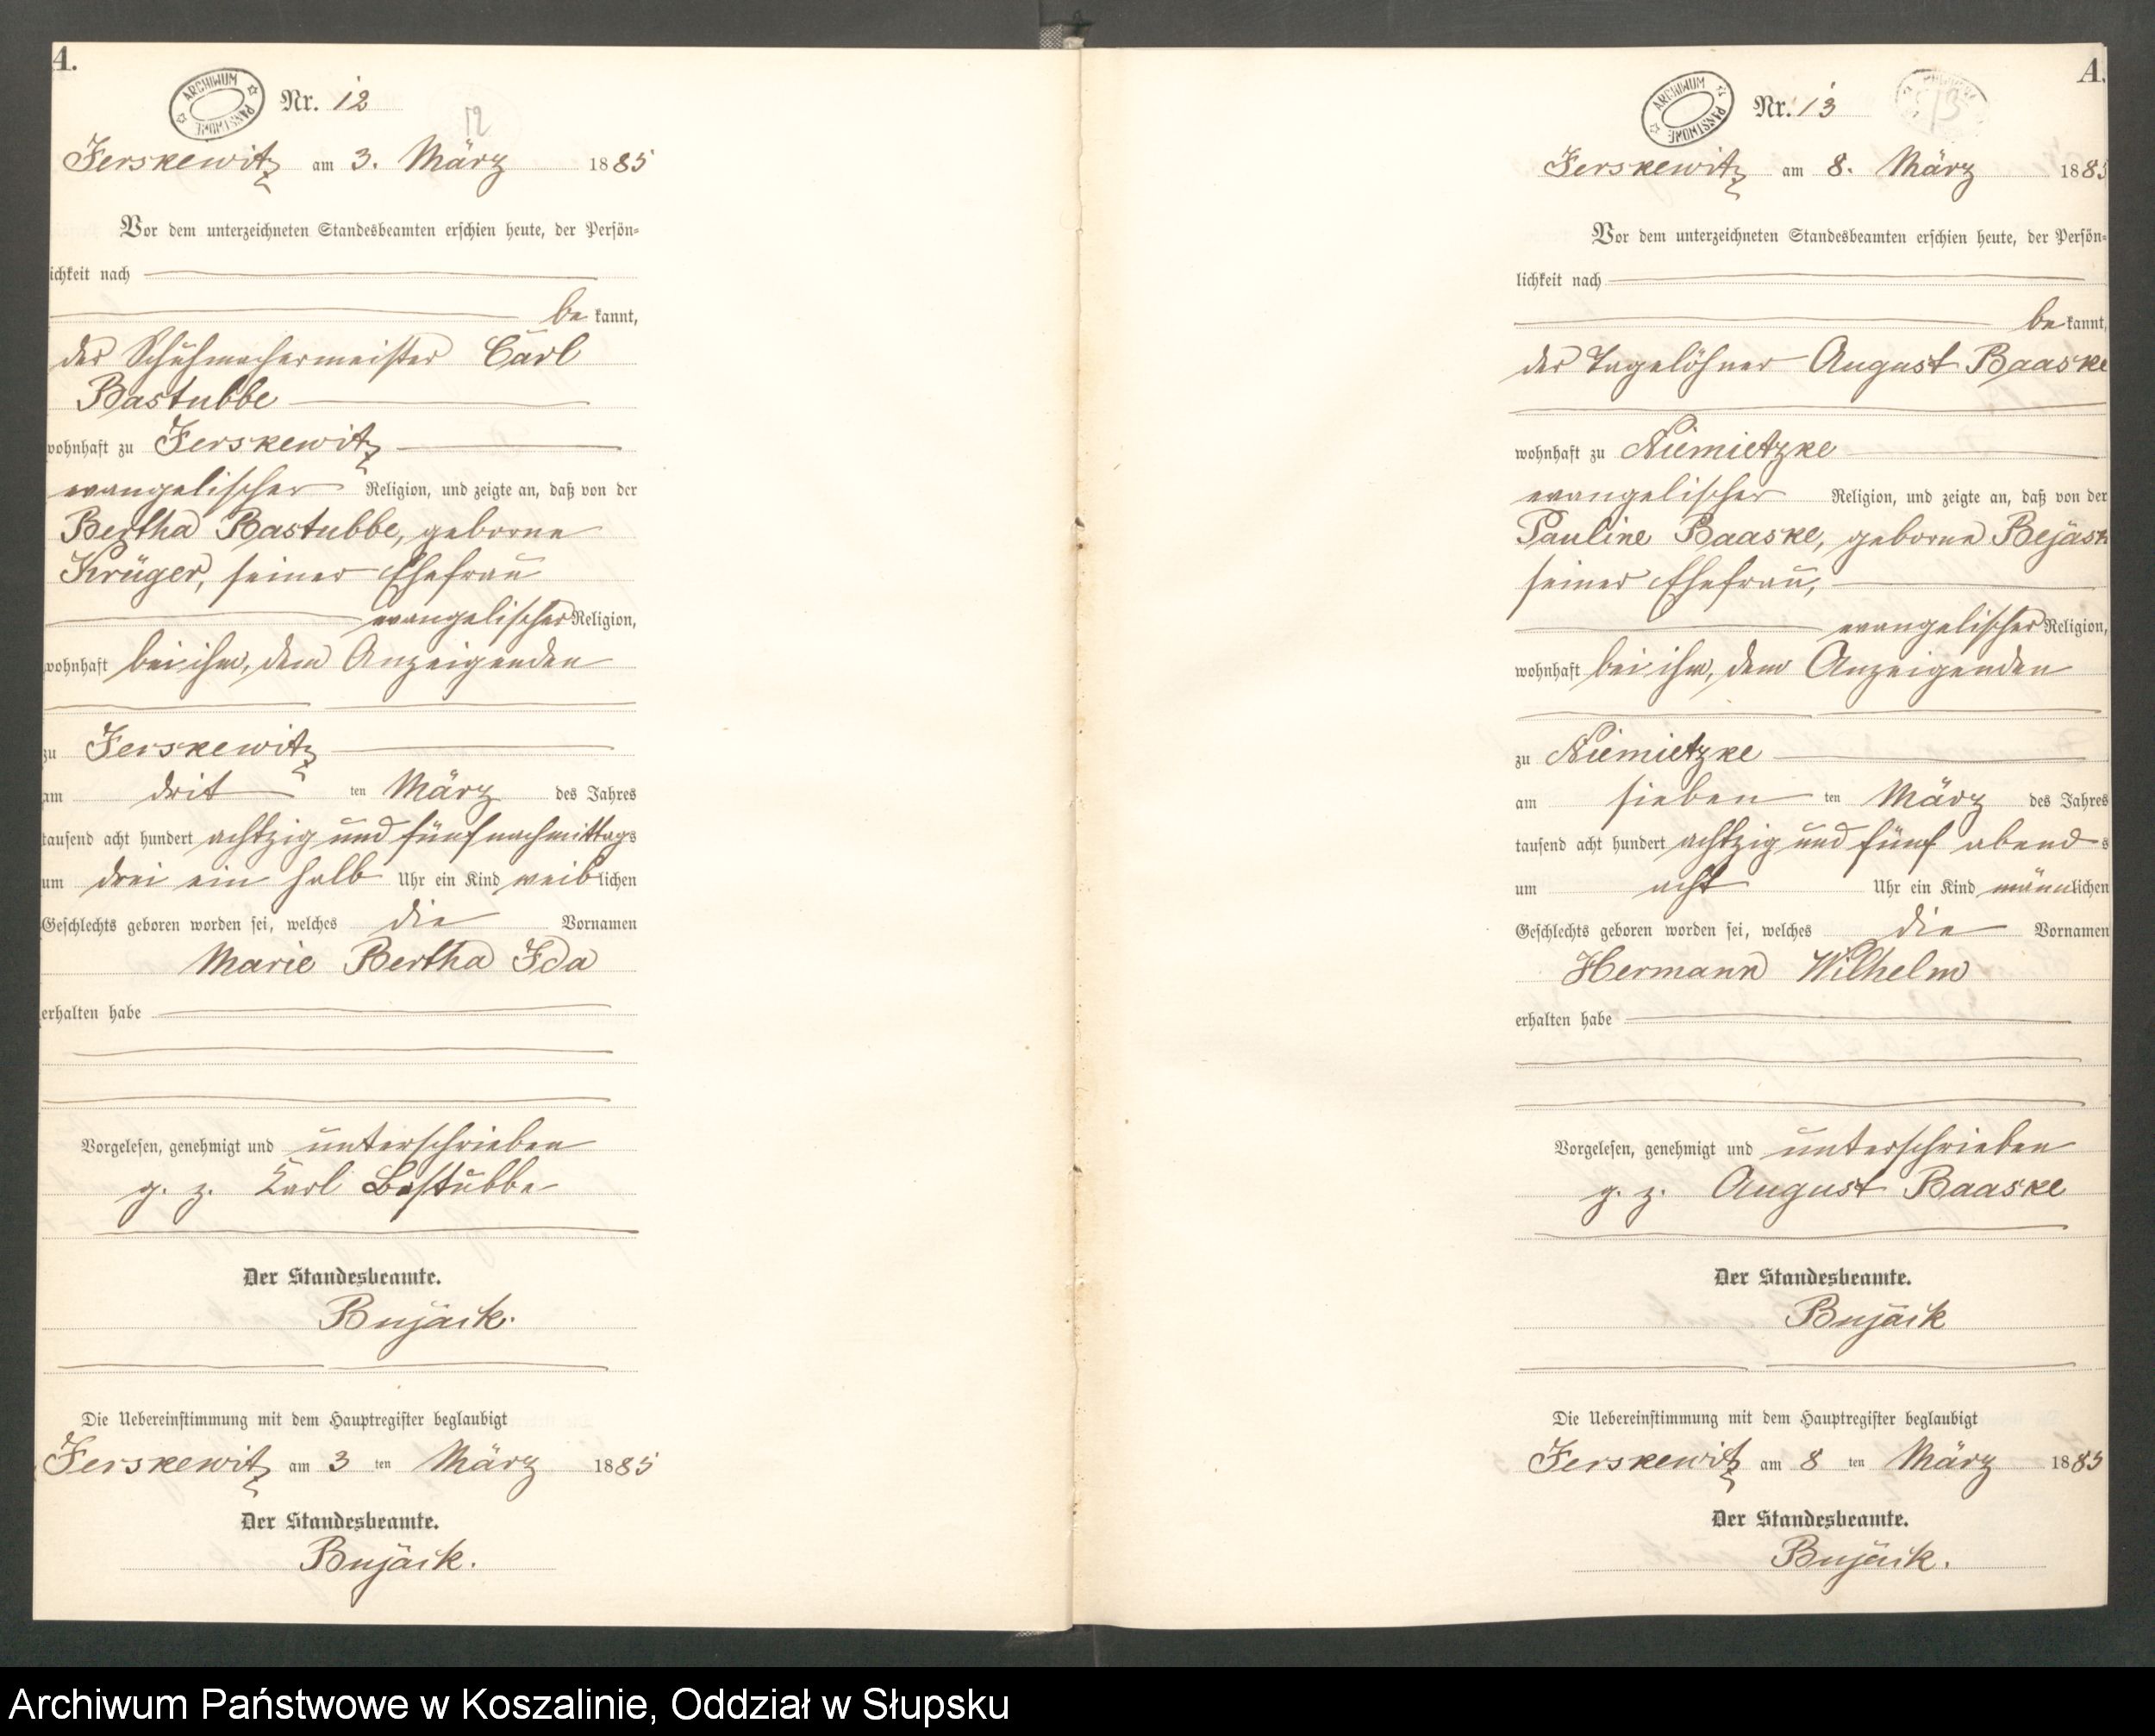 A.
ARCHIWUM PAŃSTWOWE
Nr. 12
12
Jerskewitz am 3. März 1885
Vor dem unterzeichneten Standesbeamten erschien heute, der Persön-
lichkeit nach
be kannt,
der Schuhmachermeister Carl
Bastubbe
wohnhaft zu Jerskewitz
evangelischer Religion, und zeigte an, daß von der
Bertha Bastubbe, geborne
Krüger, seiner Ehefrau
evangelischer Religion,
wohnhaft bei ihm, dem Anzeigenden
zu Jerskewitz
am drit ten März des Jahres
tausend acht hundert achtzig und fünf nachmittags
um drei ein halb Uhr ein Kind weiblichen
Geschlechts geboren worden sei, welches die Vornamen
Marie Bertha Ida
erhalten habe
Vorgelesen, genehmigt und unterschrieben
g. z. Karl Bastubbe
Der Standesbeamte.
Bujack.
Die Uebereinstimmung mit dem Hauptregister beglaubigt
Jerskewitz am 3 ten März 1885
Der Standesbeamte.
Bujack.
A.
ARCHIWUM PAŃSTWOWE
Nr. 13
13
Jerskewitz am 8. März 1885
Vor dem unterzeichneten Standesbeamten erschien heute, der Persön-
lichkeit nach
be kannt,
der Tagelöhner August Baaske
wohnhaft zu Niemietzke
evangelischer Religion, und zeigte an, daß von der
Pauline Baaske, geborne
seiner Ehefrau,
evangelischer Religion,
wohnhaft bei ihm, dem Anzeigenden
zu Niemietzke
am sieben ten März des Jahres
tausend acht hundert achtzig und fünf abend s
um acht Uhr ein Kind männlichen
Geschlechts geboren worden sei, welches die Vornamen
Hermann Wilhelm
erhalten habe
Vorgelesen, genehmigt und unterschrieben
g. z. August Baaske
Der Standesbeamte.
Bujack
Die Uebereinstimmung mit dem Hauptregister beglaubigt
Jerskewitz am 8 ten März 1885
Der Standesbeamte.
Bujack.
Archiwum Państwowe w Koszalinie, Oddział w Słupsku